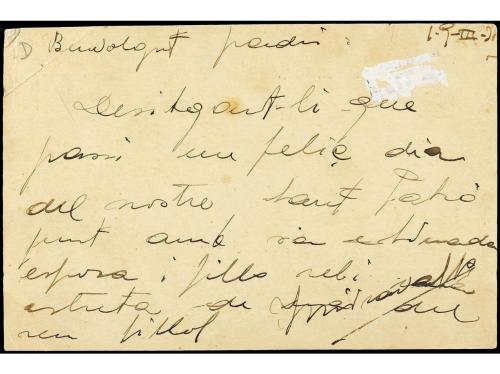 D Benvolgut padrí: 19-III-31
Desitgant-li que
passi un feliç dia
del nostre Sant Patró
junt amb sa estimada
esposa i fills rebi
estreta de del
seu fillol